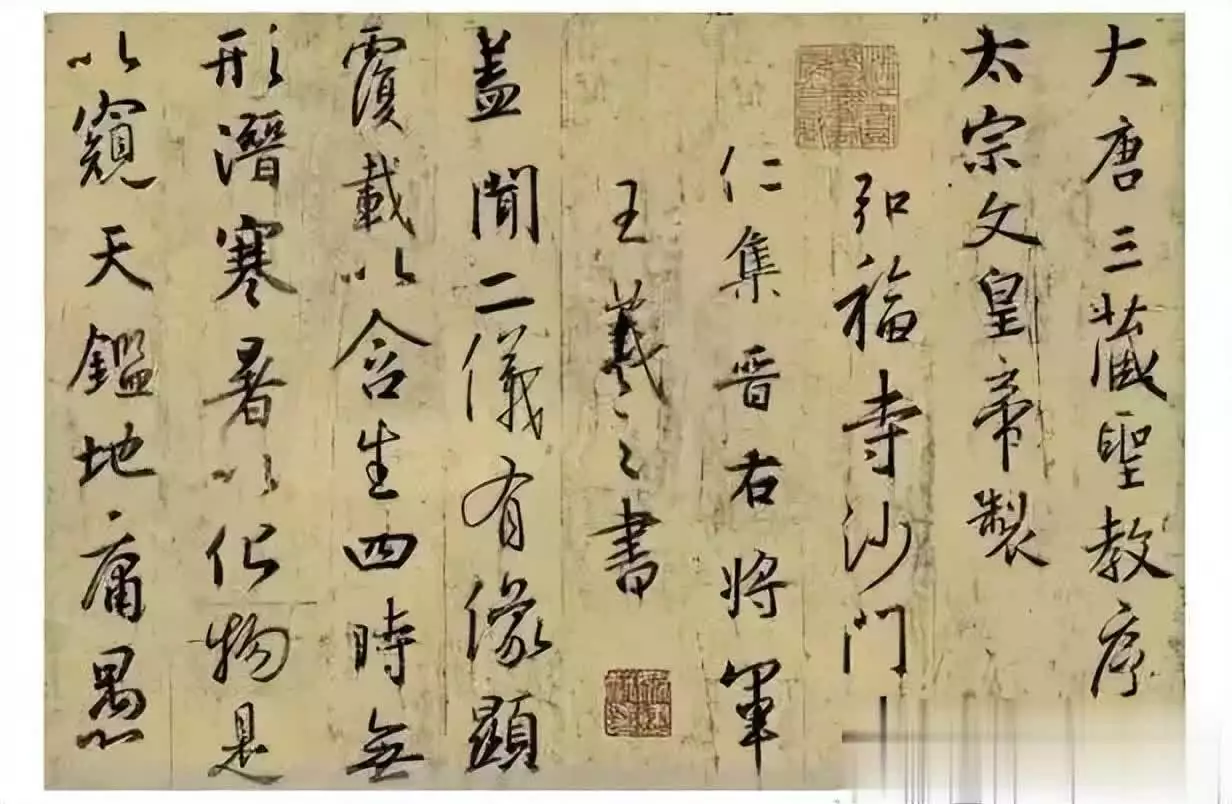 大唐三藏聖教序
太宗文皇帝製
弘福寺沙門
仁集晋右將軍
王羲之書
蓋聞二儀有像顯
覆載以含生四時無
形潛寒暑以化物是
以窺天鑑地庸愚